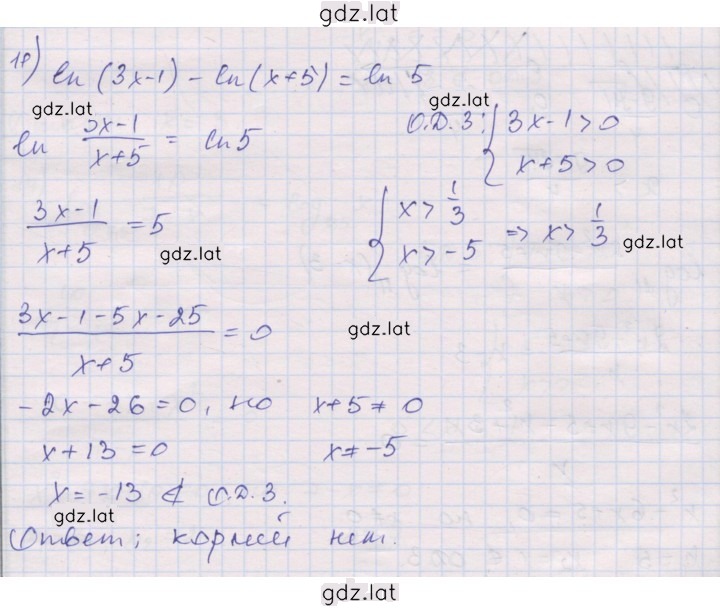 gdz.lat
18) ln (3x-1) - ln (x+5) = ln 5
gdz.lat gdz.lat
ln (3x-1)/(x+5) = ln 5 О.Д.З: { 3x-1>0
x+5>0
(3x-1)/(x+5) = 5 { x > 1/3
x > -5 => x > 1/3
gdz.lat gdz.lat
(3x-1-5x-25)/(x+5) = 0
gdz.lat
-2x-26=0, но x+5 ≠ 0
x+13=0 x ≠ -5
x = -13 ∉ О.Д.З.
gdz.lat
Ответ: корней нет.
gdz.lat